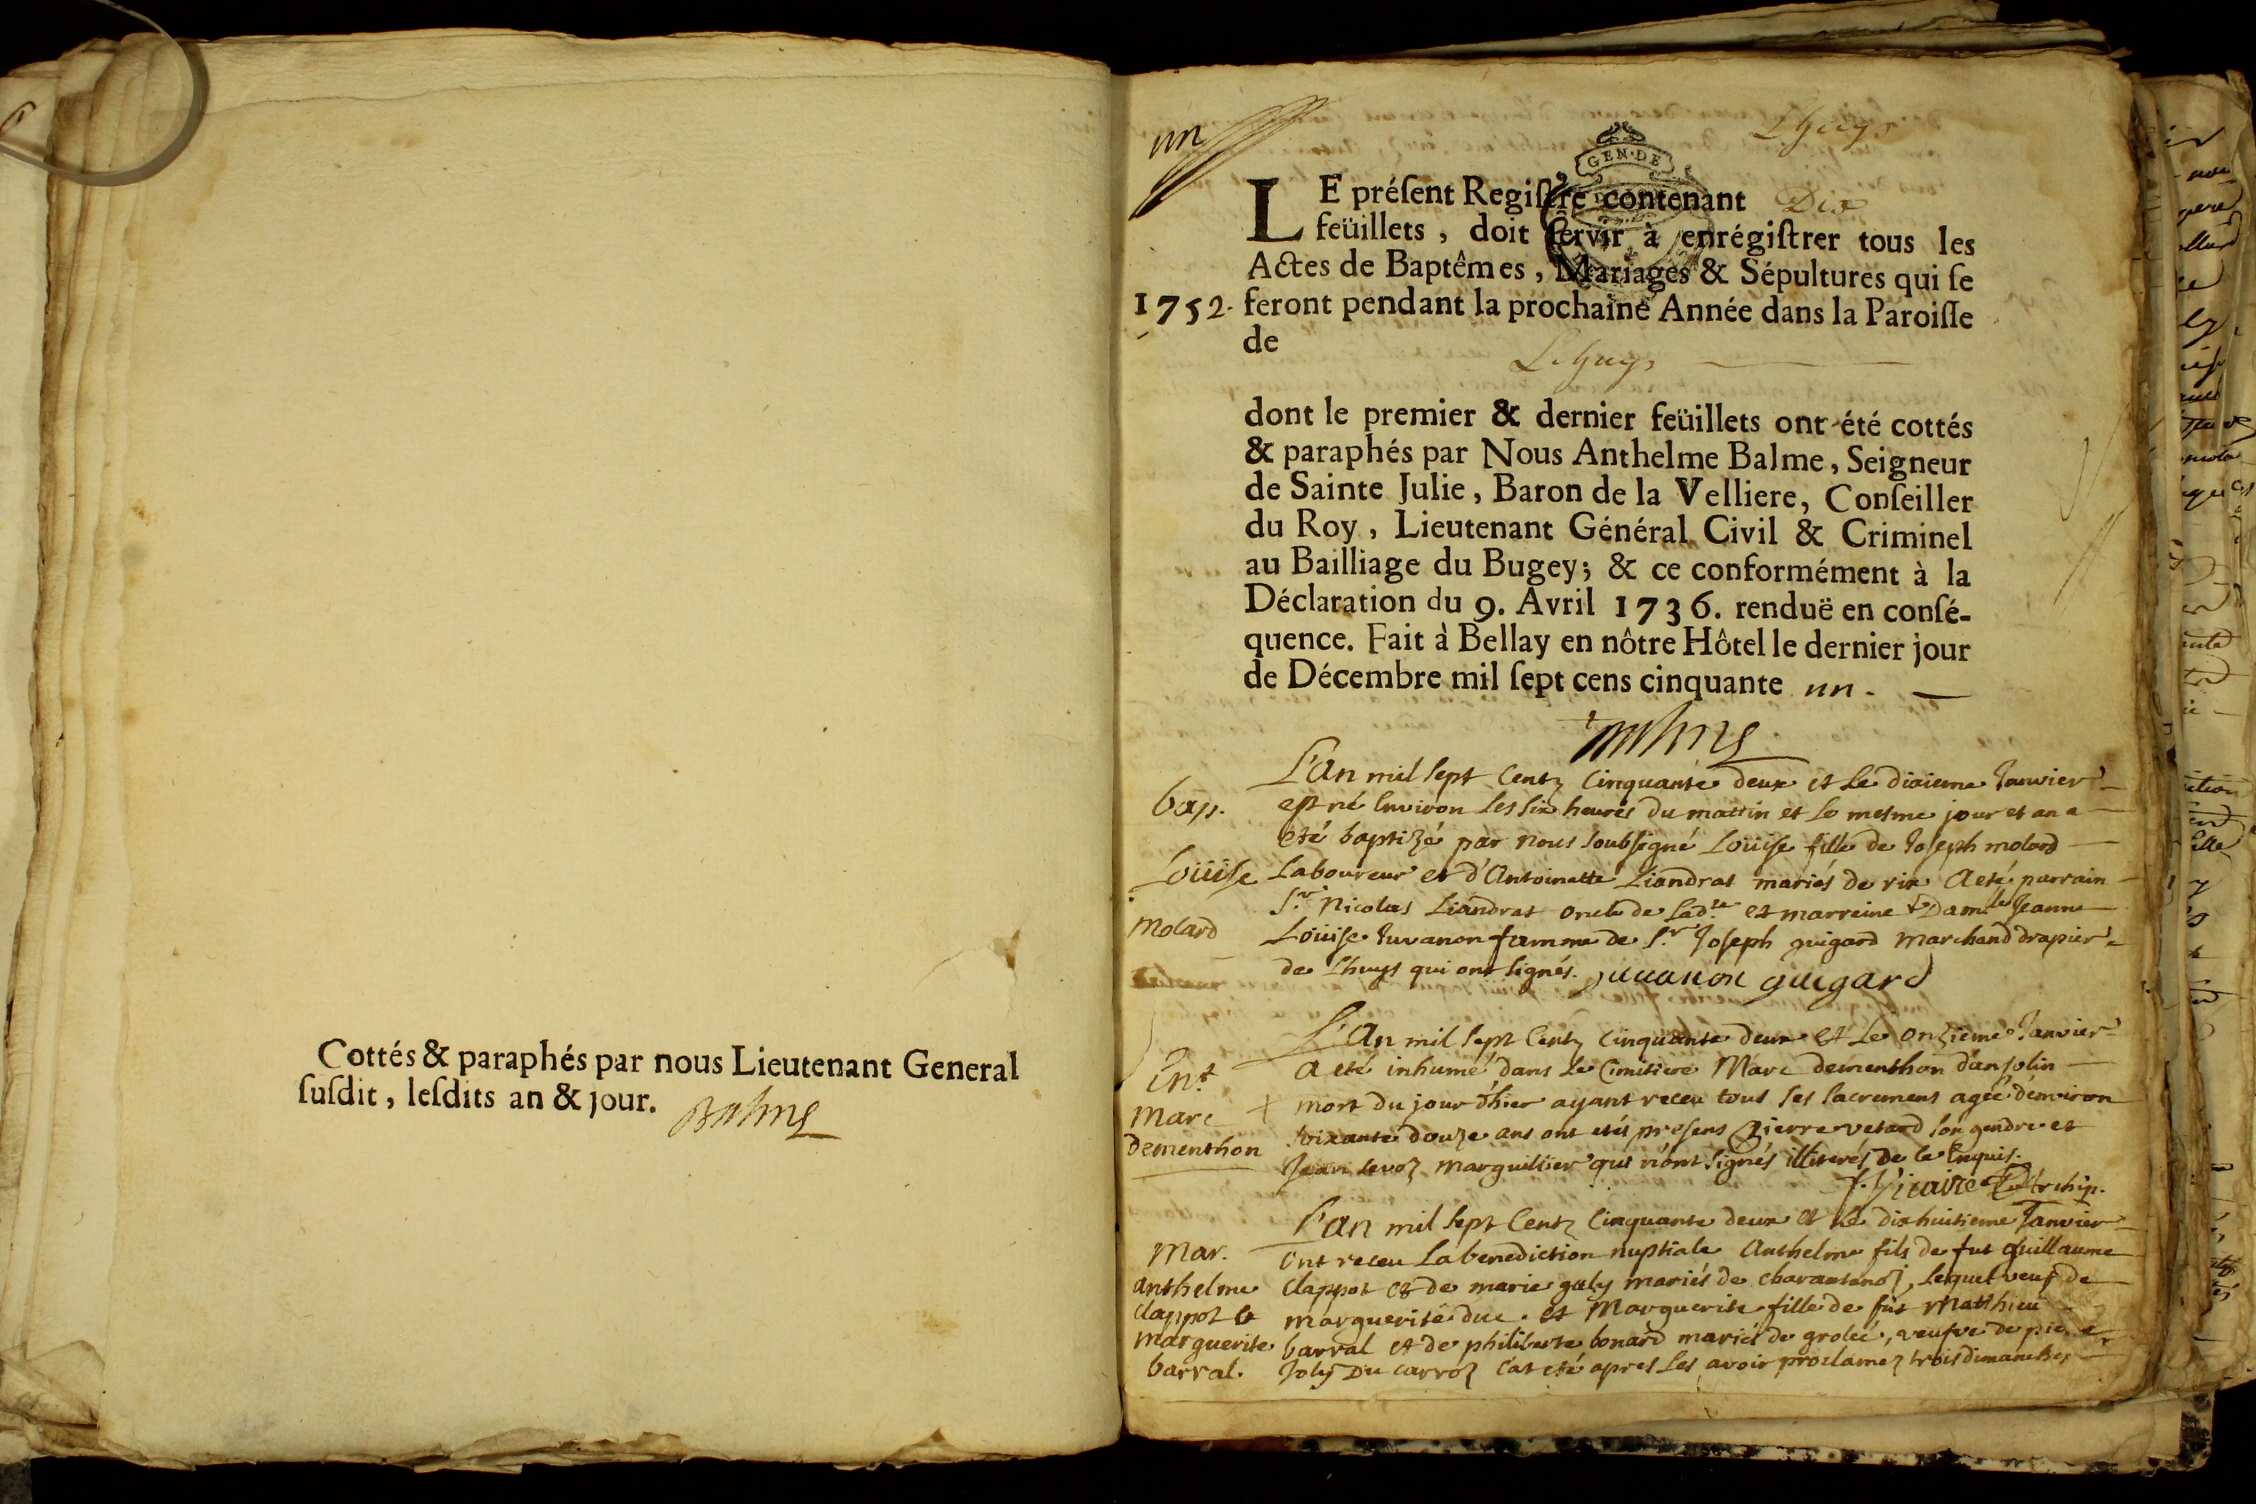 Cottés & paraphés par nous Lieutenant General
ſuſdit, leſdits an & jour.
Balme
un
Lhuys
GEN·DE
LE préſent Regiſtre contenant Dix
feüillets, doit ſervir à enrégiſtrer tous les
Actes de Baptêmes, Mariages & Sépultures qui ſe
1752. feront pendant la prochaine Année dans la Paroiſſe
de
Lhuys
dont le premier & dernier feüillets ont été cottés
& paraphés par Nous Anthelme Balme, Seigneur
de Sainte Julie, Baron de la Velliere, Conſeiller
du Roy, Lieutenant Général Civil & Criminel
au Bailliage du Bugey; & ce conformément à la
Déclaration du 9. Avril 1736. renduë en conſé-
quence. Fait à Bellay en nôtre Hôtel le dernier jour
de Décembre mil ſept cens cinquante un.
Balme
bap.
Loüise
Molard
L'an mil sept Centz Cinquante deux et le dixieme Janvier
est né Environ les six heures du mattin et le mesme jour et an a
eté baptizé par nous soubsigné Loüise fille de Joseph molard
Laboureur et d'Antoinette Liandrat mariés de rix a eté parrain
Sr. Nicolas Liandrat oncle de Ladte. et marreine Damlle Jeanne
Loüise Juvanon famme de Sr. Joseph guigard marchand drapier
de Lhuys qui ont signés. juuanon guigard
Ent
Marc
Dementhon
L'an mil sept Centz Cinquante deux et Le onzieme Janvier
a eté inhumé dans Le Cimitiere Marc dementhon d'ansolin
mort du jour d'hier ayant receu tous ses sacremens agée d'environ
soixante douze ans ont etés presens pierre vetard son gendre et
Jean levoz marguillier qui n'ont signés illiterés de ce Enquis.
f. Vicaire Archip.
Mar.
anthelme
Clappot et
marguerite
barral.
L'an mil sept Centz Cinquante deux et Le dixhuitieme Janvier
Ont receu La benediction nuptiale Anthelme fils de fut guillaume
Clappot et de marie galy mariés de , Lequel veuf de
marguerite duc. et Marguerite fille de fut Matthieu
barral et de philiberte bonard mariés de groleé, veufve de pierre
Joly du carroz c'at eté apres Les avoir proclamez trois dimanches